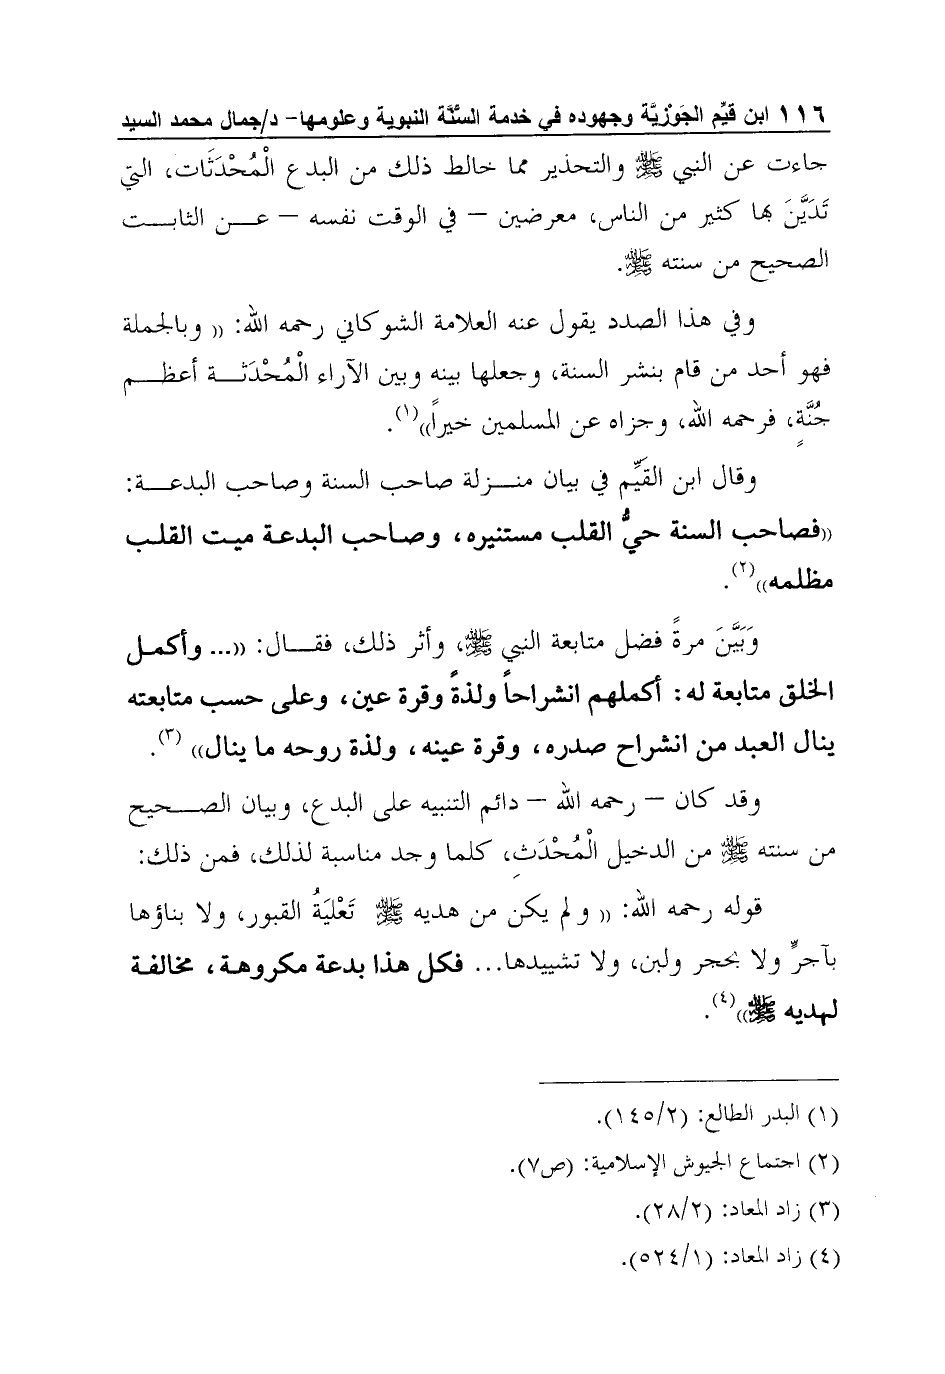 ١١٦ ابن قيِّم الجَوْزِيَّة وجهوده في خدمة السنَّة النبوية وعلومها- د/جمال محمد السيد
جاءت عن النبي ﷺ والتحذير مما خالط ذلك من البدع الْمُحْدَثَات، التي
تَدَيَّنَ بها كثير من الناس، معرضين – في الوقت نفسه – عن الثابت
الصحيح من سنته ﷺ.
وفي هذا الصدد يقول عنه العلامة الشوكاني رحمه الله: ((وبالجملة
فهو أحد من قام بنشر السنة، وجعلها بينه وبين الآراء الْمُحْدَثة أعظم
جُنَّةٍ، فرحمه الله، وجزاه عن المسلمين خيراً))(١).
وقال ابن القيِّم في بيان منزلة صاحب السنة وصاحب البدعة:
((فصاحب السنة حيُّ القلب مستنيره، وصاحب البدعة ميت القلب
مظلمه))(٢).
وَبَيَّنَ مرةً فضل متابعة النبي ﷺ، وأثر ذلك، فقال: ((... وأكمل
الخلق متابعة له: أكملهم انشراحاً ولذةً وقرة عين، وعلى حسب متابعته
ينال العبد من انشراح صدره، وقرة عينه، ولذة روحه ما ينال)) (٣).
وقد كان – رحمه الله – دائم التنبيه على البدع، وبيان الصحيح
من سنته ﷺ من الدخيل الْمُحْدَثِ، كلما وجد مناسبة لذلك، فمن ذلك:
قوله رحمه الله: ((ولم يكن من هديه ﷺ تَعْلِيَةُ القبور، ولا بناؤها
بآجرٍّ ولا بحجر ولبن، ولا تشييدها... فكل هذا بدعة مكروهة، مخالفة
لهديه ﷺ))(٤).
(١) البدر الطالع: (١٤٥/٢).
(٢) اجتماع الجيوش الإسلامية: (ص٧).
(٣) زاد المعاد: (٢٨/٢).
(٤) زاد المعاد: (٥٢٤/١).